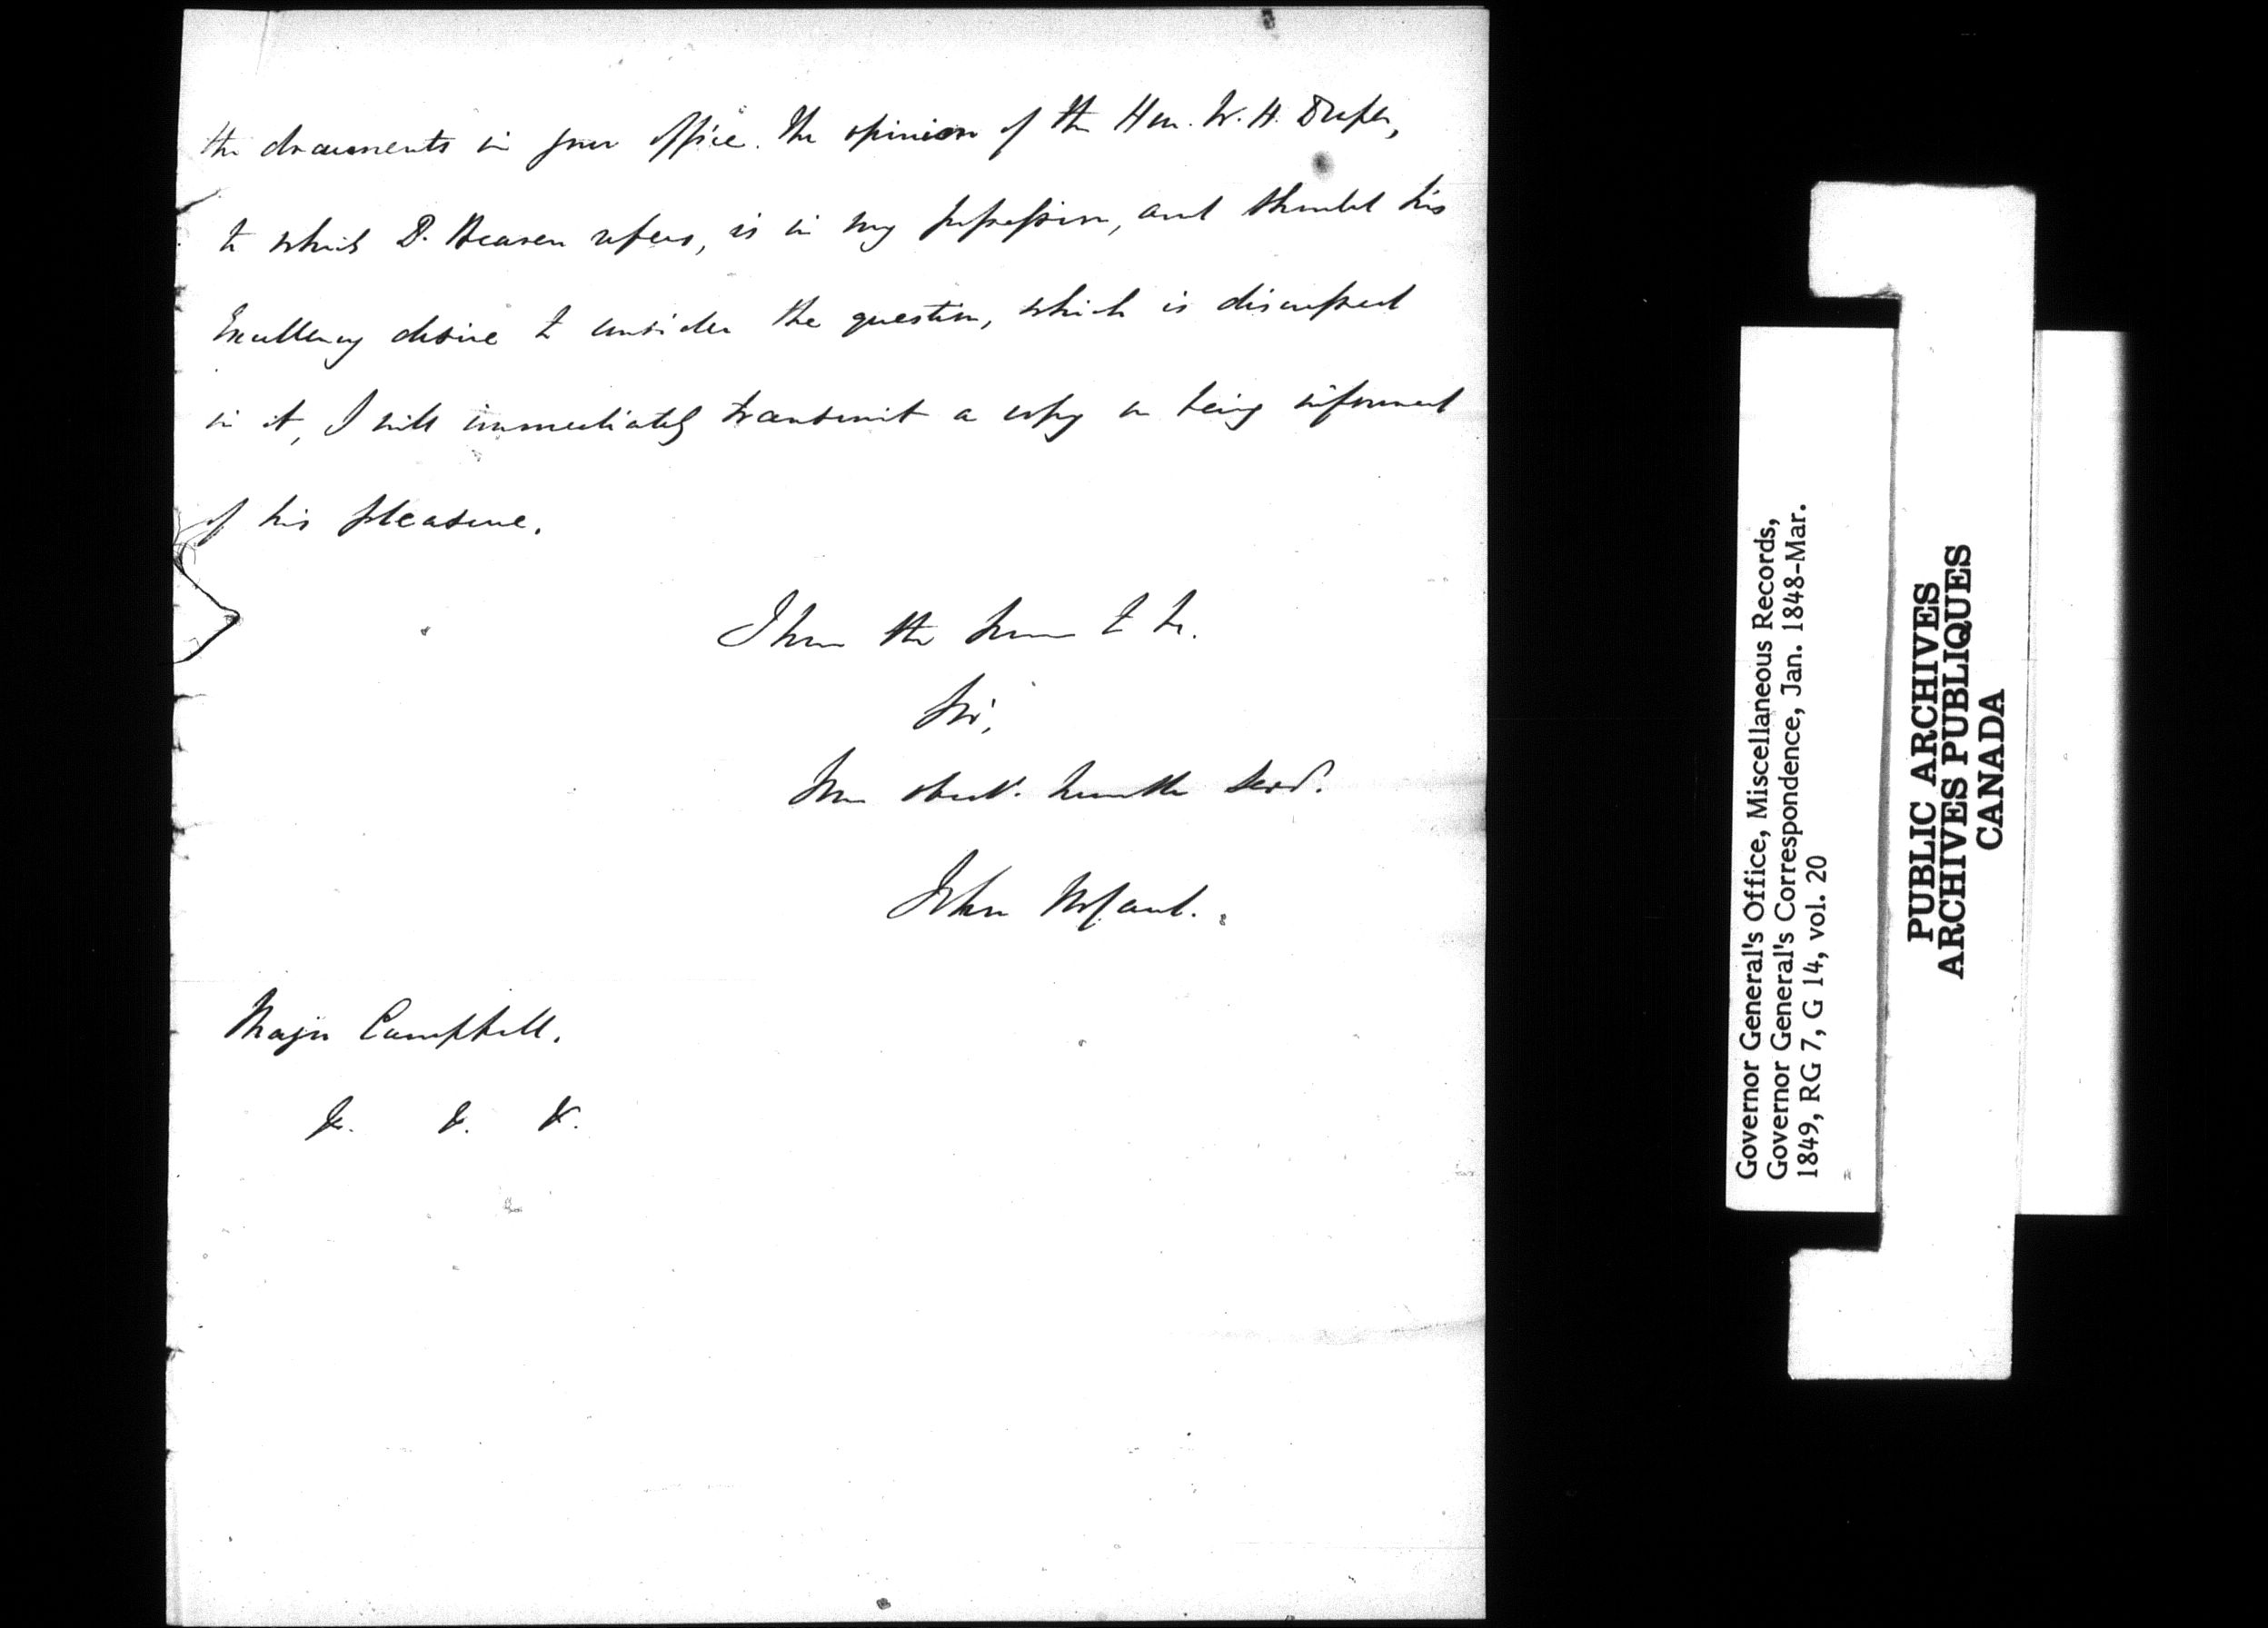 the documents in your office. The opinion of the Hon. W. H. Draper,
to which Dr. Beaven refers, is in my possession, and should his
Excellency desire to consider the question, which is discussed
in it, I will immediately transmit a copy on being informed
of his pleasure.
I have the honor to be.
Sir,
Your obedt. humble Servt.
John McCaul.
Major Campbell.
&c. &c. &c.
Governor General's Office, Miscellaneous Records,
Governor General's Correspondence, Jan. 1848-Mar.
1849, RG 7, G 14, vol. 20
PUBLIC ARCHIVES
ARCHIVES PUBLIQUES
CANADA